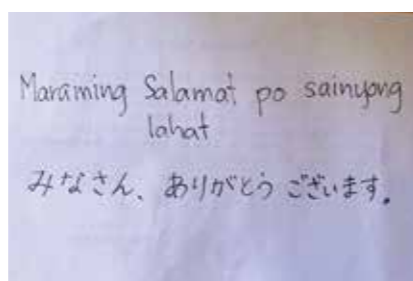 Maraming Salamat po sainyong
lahat
みなさん、ありがとうございます。